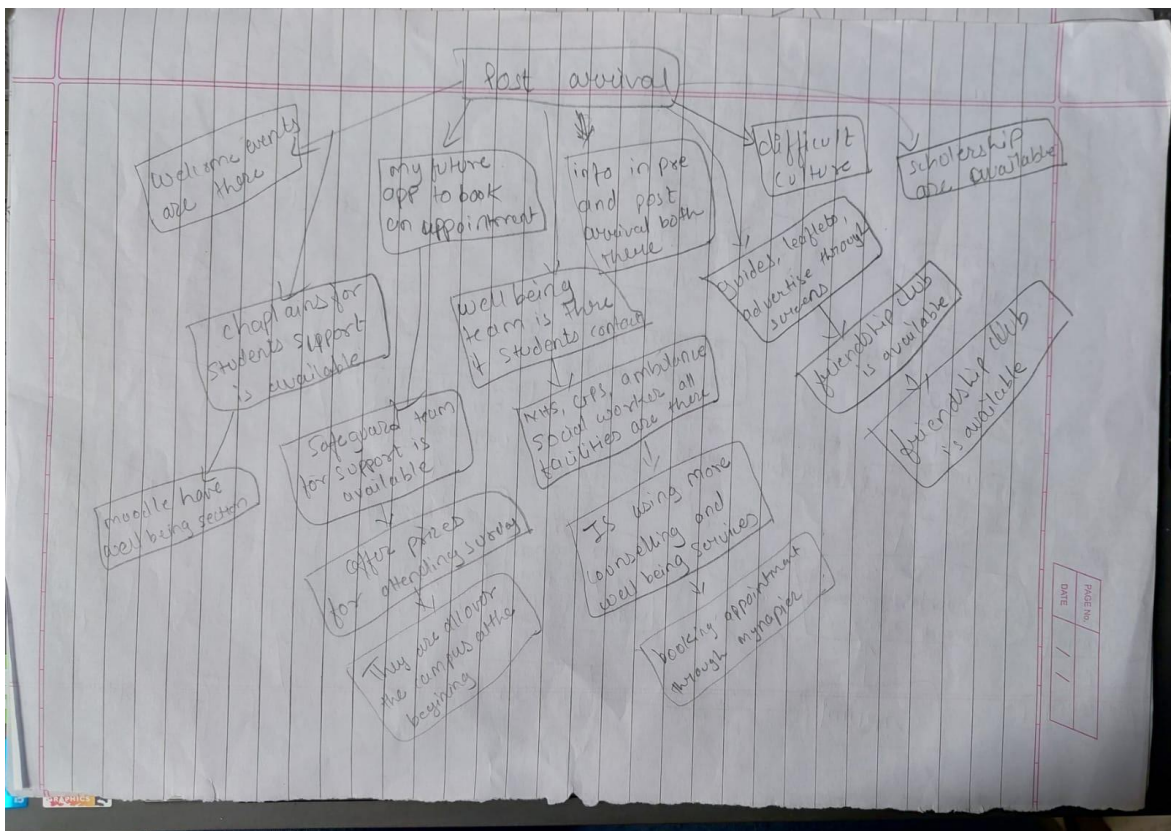 Post arrival
welcome events
are there
my future
app to book
an appointment
info in pre
and post
arrival both
there
difficult
culture
scholership
are available
chaplains for
students support
is available
well being
team is there
if students contact
guides, leaflets,
advertise through
screens
friendship club
is available
friendship club
is available
moodle have
well being section
Safeguard team
for support is
available
NHS, GPS, ambulance
social worker all
facilities are there
offer prizes
for attending survey
IS using more
counselling and
well being services
They are all over
the campus at the
begining
booking appointment
through mynapier
PAGE No.
DATE / /
GRAPHICS